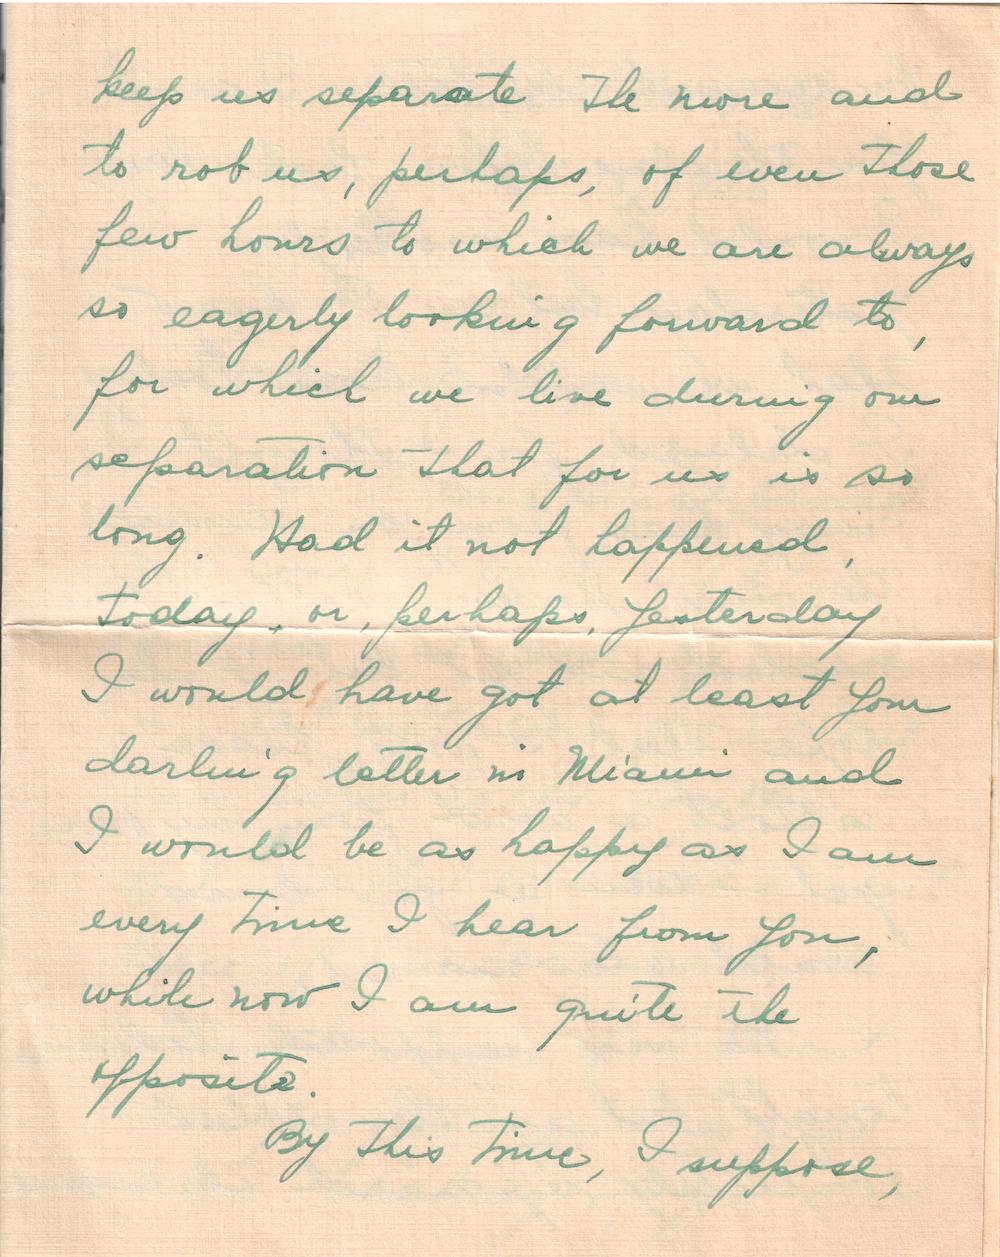 keep us separate the more and
to rob us, perhaps, of even those
few hours to which we are always
so eagerly looking forward to,
for which we live during our
separation that for us is so
long. Had it not happened,
today, or, perhaps, yesterday
I would have got at least your
darling letter in Miami and
I would be as happy as I am
every time I hear from you,
while now I am quite the
opposite.
By this time, I suppose,